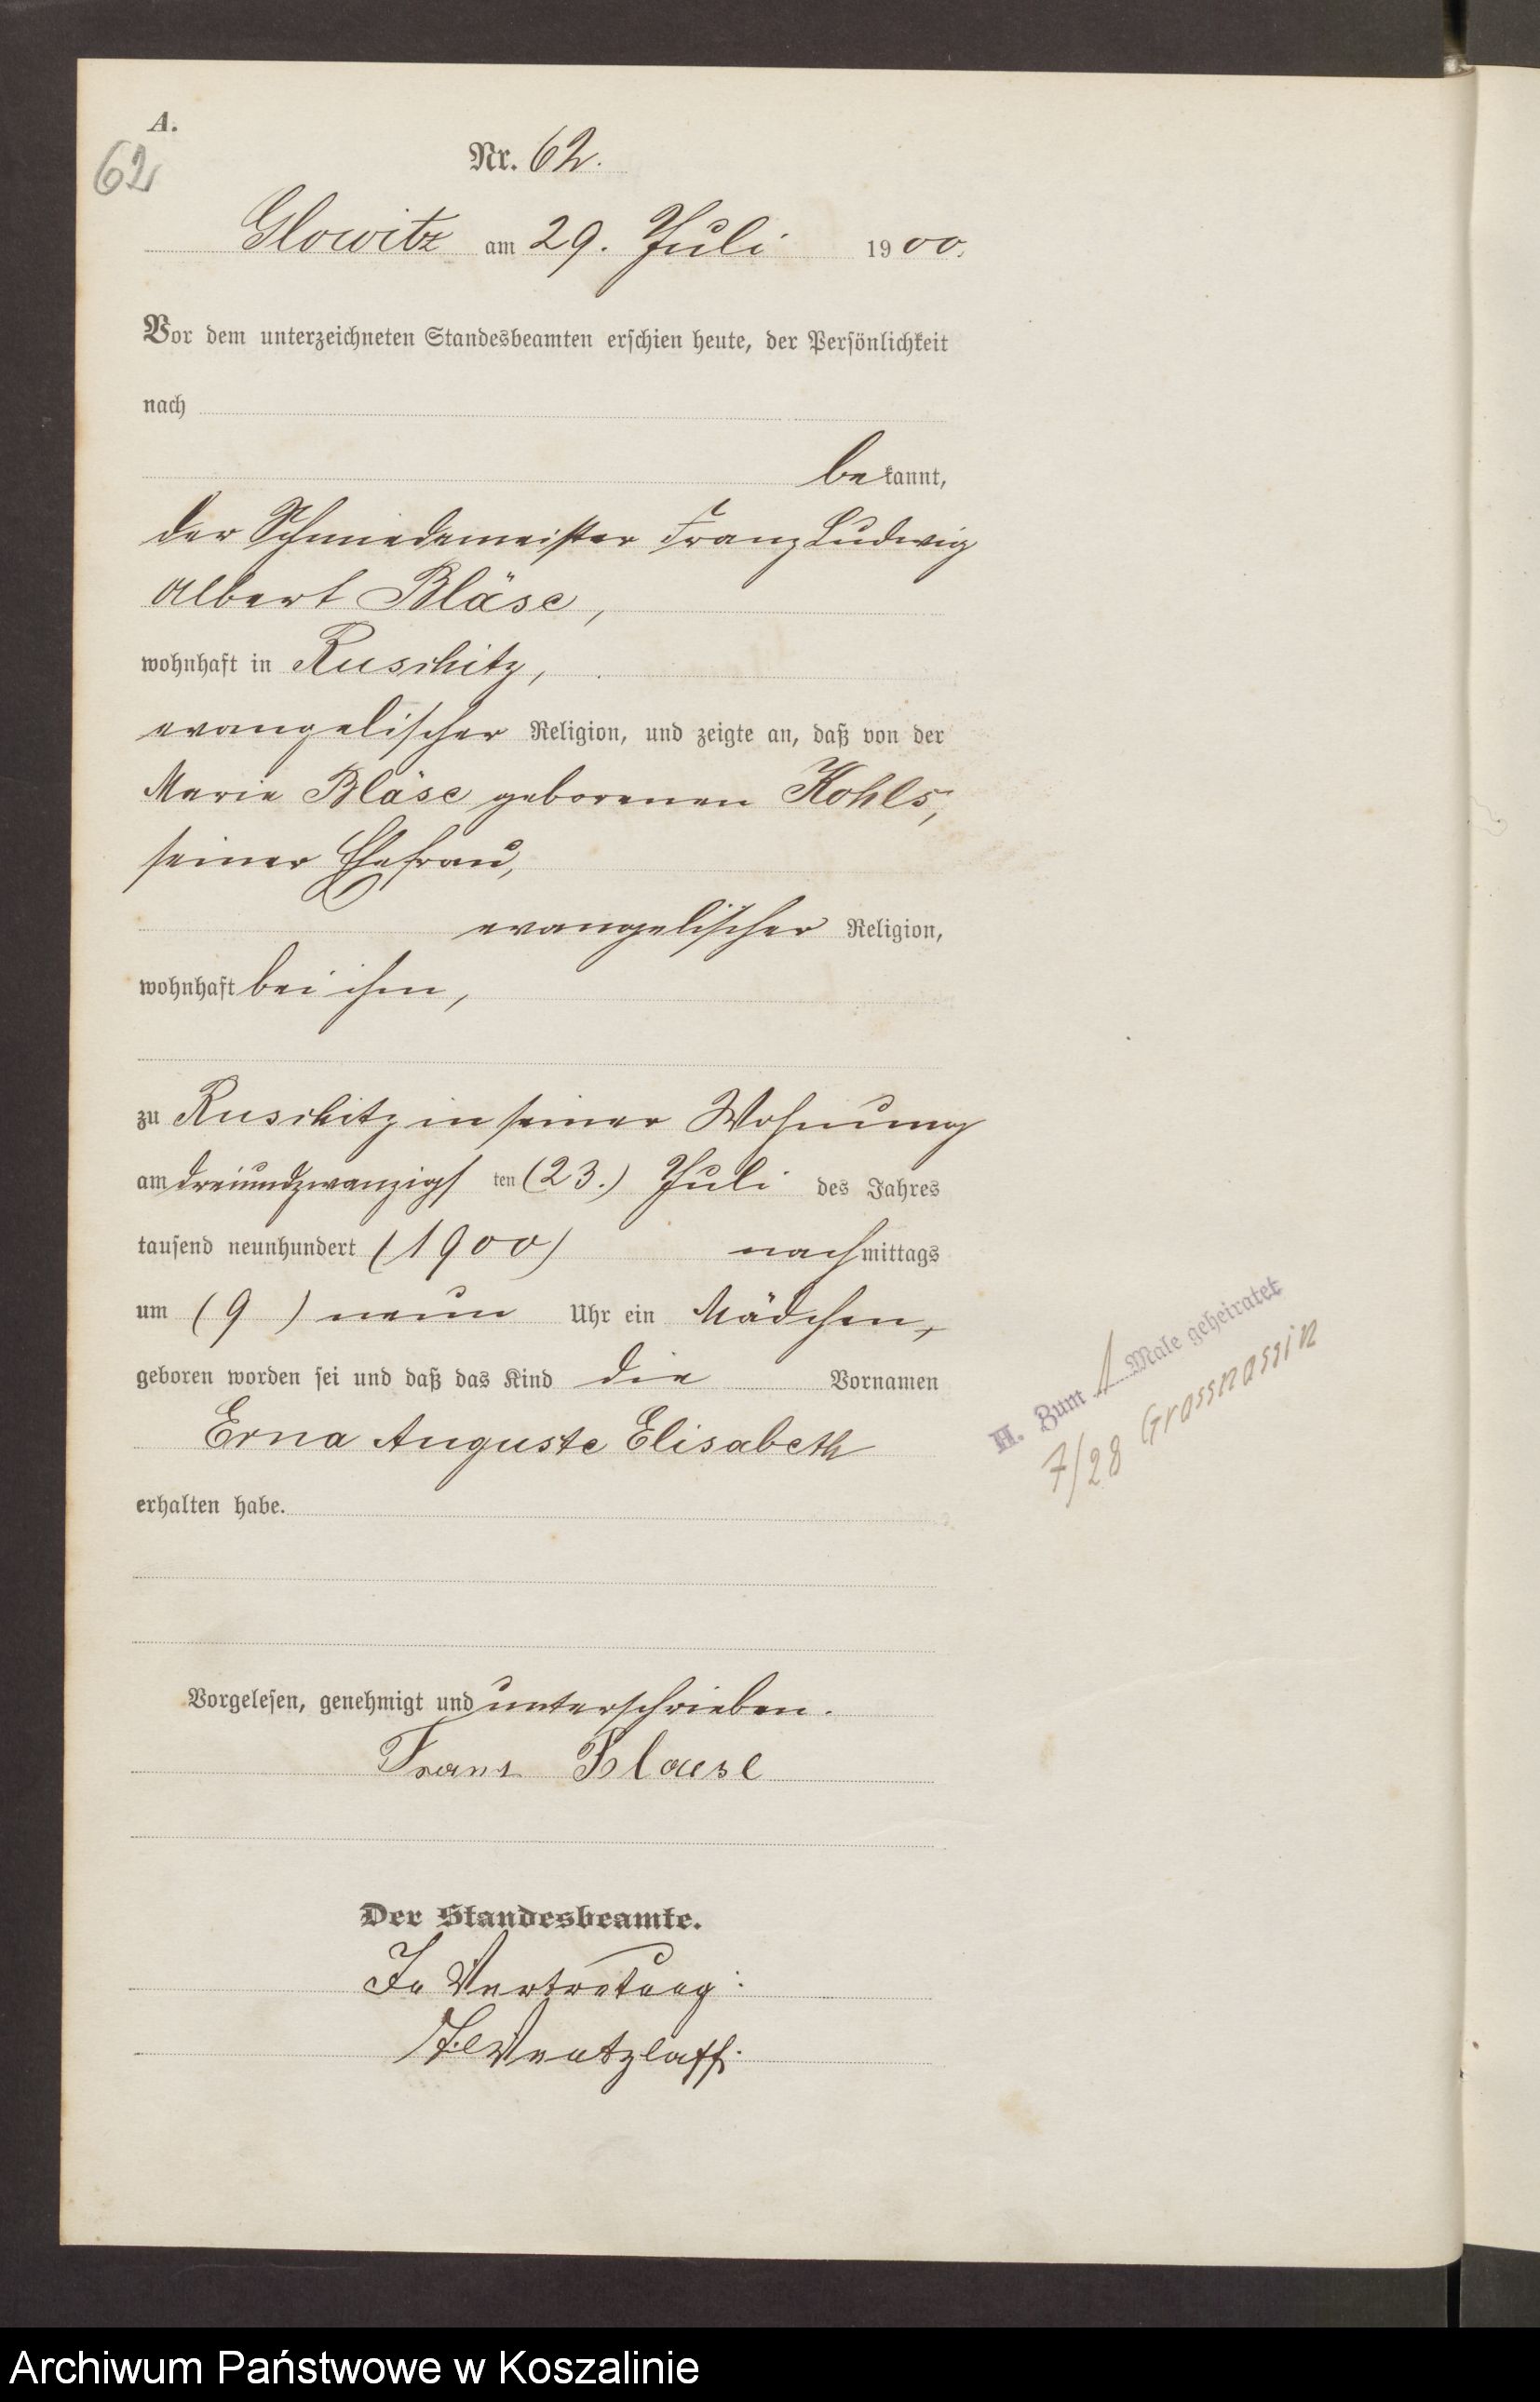 A.
62
Nr. 62.
Glowitz am 29. Juli 1900.
Vor dem unterzeichneten Standesbeamten erschien heute, der Persönlichkeit
nach
bekannt,
der Schmiedemeister Franz Ludwig
Albert Bläse,
wohnhaft in Ruschitz,
evangelischer Religion, und zeigte an, daß von der
Marie Bläse geborenen Kohls,
seiner Ehefrau,
evangelischer Religion,
wohnhaft bei ihm,
zu Ruschitz in seiner Wohnung
am dreiundzwanzigsten (23.) Juli des Jahres
tausend neunhundert (1900) nachmittags
um (9) neun Uhr ein Mädchen,
geboren worden sei und daß das Kind die Vornamen
Erna Auguste Elisabeth
erhalten habe.
H. Zum 1 Male geheiratet
7/28 Grossnossin
Vorgelesen, genehmigt und unterschrieben.
Franz Blaese
Der Standesbeamte.
In Vertretung:
Wentzlaff.
Archiwum Państwowe w Koszalinie